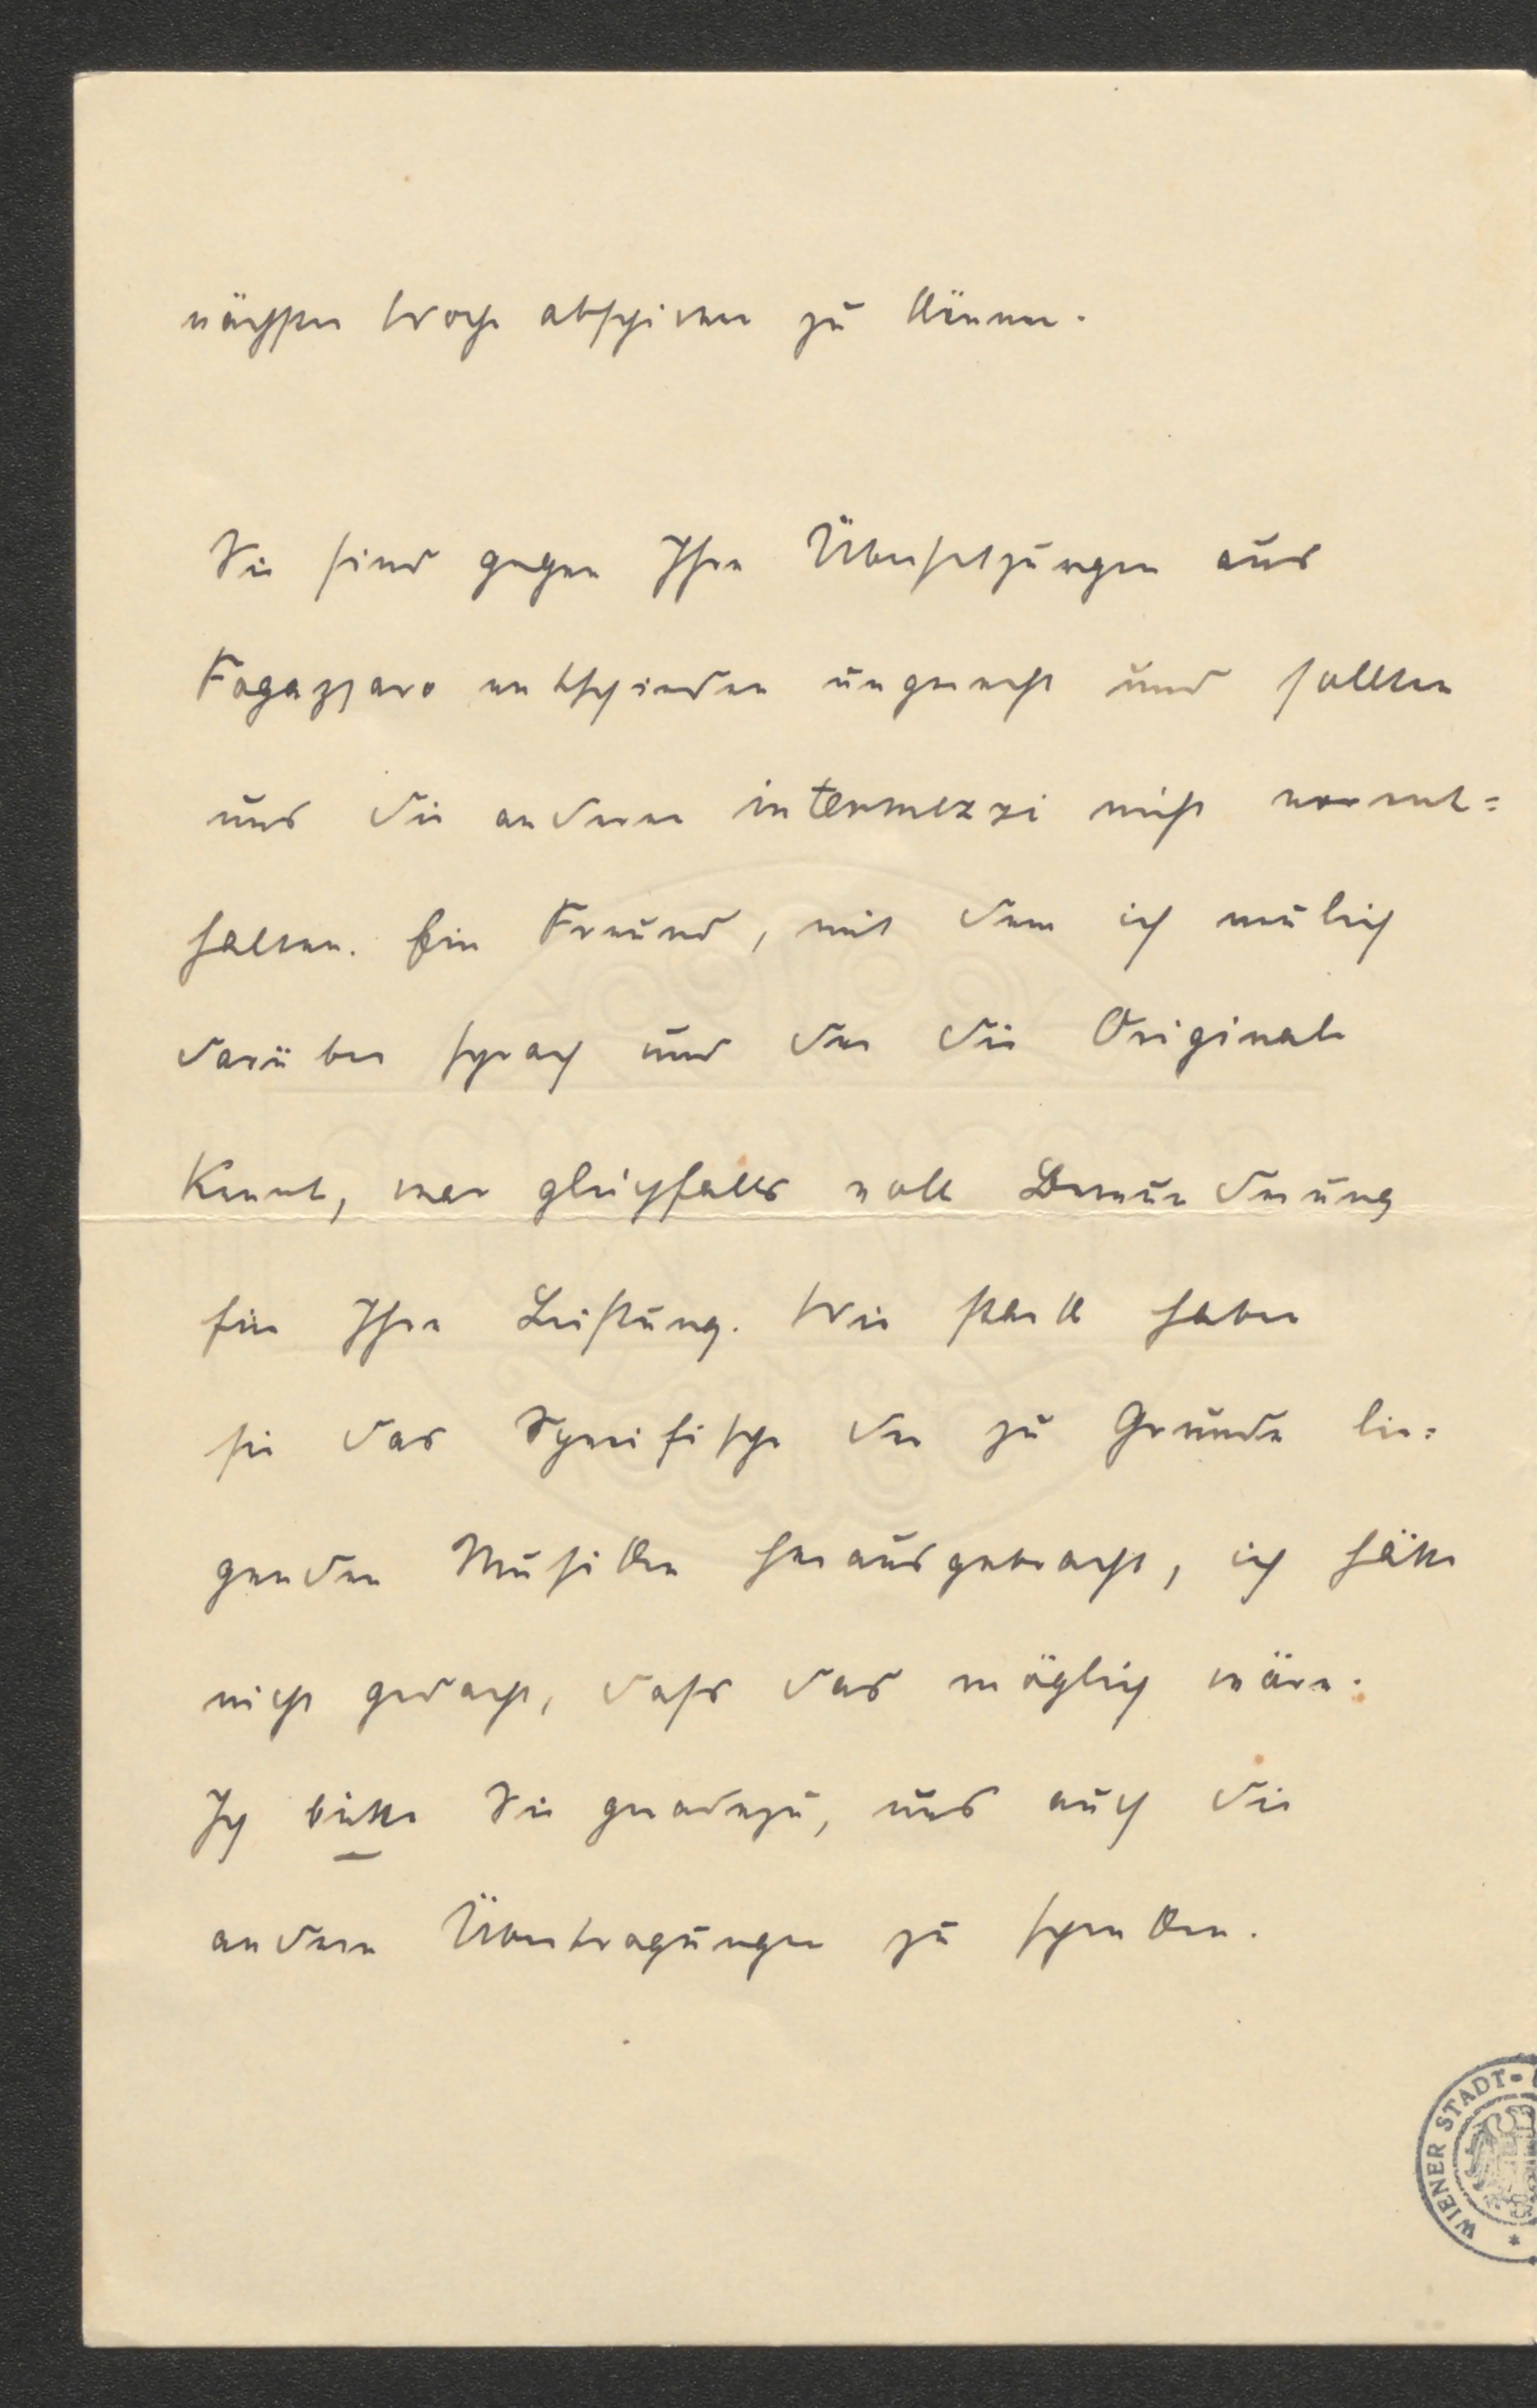 nächste Woche abschicken zu können.
Sie sind gegen Ihre Übersetzungen aus
Fogazzaro entschieden ungerecht und sollten
uns die anderen intermezzi nicht vorent=
halten. Ein Freund, mit dem ich neulich
darüber sprach und der die Originale
kennt, war gleichfalls voll Bewunderung
für Ihre Leistung. Wie stark haben
sie das Spezifische der zu Grunde lie=
genden Musiken herausgebracht, ich hätte
nicht gedacht, dass das möglich wäre.
Ich bitte Sie geradezu, uns auch die
andern Übertragungen zu schenken.
WIENER STADT-